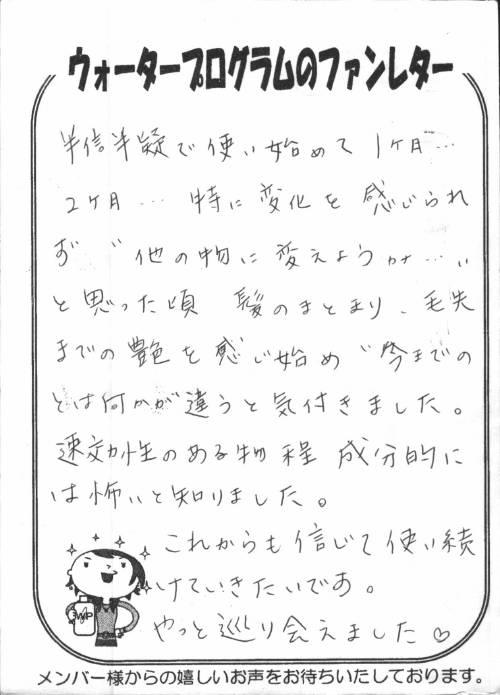 ウォータープログラムのファンレター
半信半疑で使い始めて1ヶ月…
2ヶ月… 特に変化を感じられ
ず〝他の物に変えようか…〟
と思った頃 髪のまとまり、毛先
までの艶を感じ始め〝今までの
とは何かが違うと気付きました。
速効性のある物程 成分的に
は怖いと知りました。
これからも信じて使い続
けていきたいです。
やっと巡り会えました♡
WP
メンバー様からの嬉しいお声をお待ちいたしております。